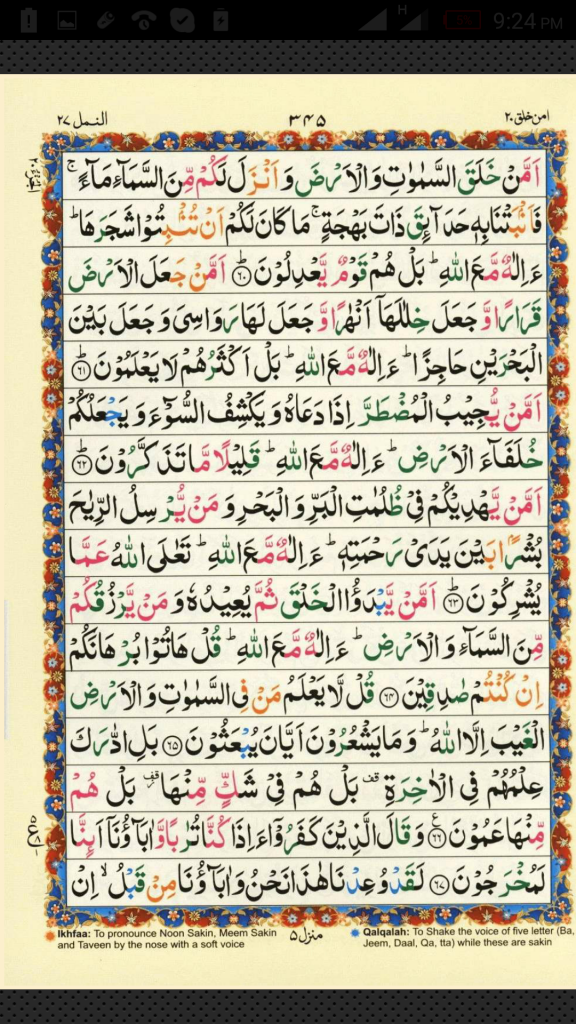 H
5%
9:24 PM
امن خلق ۲۰
۳۴۵
النمل ۲۷
اَمَّنْ خَلَقَ السَّمٰوٰتِ وَالْاَرْضَ وَاَنْزَلَ لَكُمْ مِّنَ السَّمَآءِ مَآءً ۚ
فَاَنْۢبَتْنَا بِهٖ حَدَآئِقَ ذَاتَ بَهْجَةٍ ۚ مَا كَانَ لَكُمْ اَنْ تُنْۢبِتُوْا شَجَرَهَا ؕ
ءَاِلٰهٌ مَّعَ اللّٰهِ ؕ بَلْ هُمْ قَوْمٌ يَّعْدِلُوْنَ ؕ۶۰ اَمَّنْ جَعَلَ الْاَرْضَ
قَرَارًا وَّجَعَلَ خِلٰلَهَاۤ اَنْهٰرًا وَّجَعَلَ لَهَا رَوَاسِيَ وَجَعَلَ بَيْنَ
الْبَحْرَيْنِ حَاجِزًا ؕ ءَاِلٰهٌ مَّعَ اللّٰهِ ؕ بَلْ اَكْثَرُهُمْ لَا يَعْلَمُوْنَ ؕ۶۱
اَمَّنْ يُّجِيْبُ الْمُضْطَرَّ اِذَا دَعَاهُ وَيَكْشِفُ السُّوْٓءَ وَيَجْعَلُكُمْ
خُلَفَآءَ الْاَرْضِ ؕ ءَاِلٰهٌ مَّعَ اللّٰهِ ؕ قَلِيْلًا مَّا تَذَكَّرُوْنَ ؕ۶۲
اَمَّنْ يَّهْدِيْكُمْ فِيْ ظُلُمٰتِ الْبَرِّ وَالْبَحْرِ وَمَنْ يُّرْسِلُ الرِّيٰحَ
بُشْرًۢا بَيْنَ يَدَيْ رَحْمَتِهٖ ؕ ءَاِلٰهٌ مَّعَ اللّٰهِ ؕ تَعٰلَى اللّٰهُ عَمَّا
يُشْرِكُوْنَ ؕ۶۳ اَمَّنْ يَّبْدَؤُا الْخَلْقَ ثُمَّ يُعِيْدُهٗ وَمَنْ يَّرْزُقُكُمْ
مِّنَ السَّمَآءِ وَالْاَرْضِ ؕ ءَاِلٰهٌ مَّعَ اللّٰهِ ؕ قُلْ هَاتُوْا بُرْهَانَكُمْ
اِنْ كُنْتُمْ صٰدِقِيْنَ ۶۴ قُلْ لَّا يَعْلَمُ مَنْ فِي السَّمٰوٰتِ وَالْاَرْضِ
الْغَيْبَ اِلَّا اللّٰهُ ؕ وَمَا يَشْعُرُوْنَ اَيَّانَ يُبْعَثُوْنَ ۶۵ بَلِ ادّٰرَكَ
عِلْمُهُمْ فِي الْاٰخِرَةِ قف بَلْ هُمْ فِيْ شَكٍّ مِّنْهَا قف بَلْ هُمْ
مِّنْهَا عَمُوْنَ ۶۶ ع وَقَالَ الَّذِيْنَ كَفَرُوْۤا ءَاِذَا كُنَّا تُرٰبًا وَّاٰبَآؤُنَاۤ اَئِنَّا
لَمُخْرَجُوْنَ ۶۷ لَقَدْ وُعِدْنَا هٰذَا نَحْنُ وَاٰبَآؤُنَا مِنْ قَبْلُ ۙ اِنْ
Ikhfaa: To pronounce Noon Sakin, Meem Sakin
and Taveen by the nose with a soft voice
منزل ۵
Qalqalah: To Shake the voice of five letter (Ba,
Jeem, Daal, Qa, tta) while these are sakin